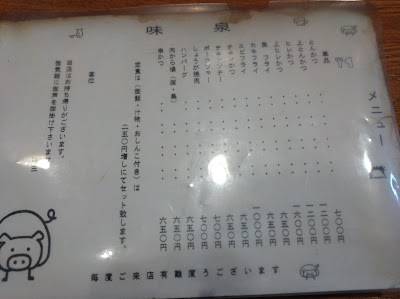 味泉
メニュー
単品
とんかつ 七〇〇円
上とんかつ 一二〇〇円
ヒレかつ 一〇〇〇円
上ヒレかつ 一二〇〇円
魚フライ 六五〇円
カキフライ 六五〇円
エビフライ 一〇〇〇円
チキンかつ 六五〇円
チキンソテー 六五〇円
ポークソテー 七〇〇円
しょうが焼肉 七〇〇円
ハンバーグ 六五〇円
肉から揚(豚・鳥) 六五〇円
串かつ 六五〇円
定食は(御飯・汁物・おしんこ付き)は
二五〇円増しにてセット致します。
各位
当店はお持ち帰りがございます。
御気軽に御声を御掛け下さいませ
毎度ご来店有難度うございます